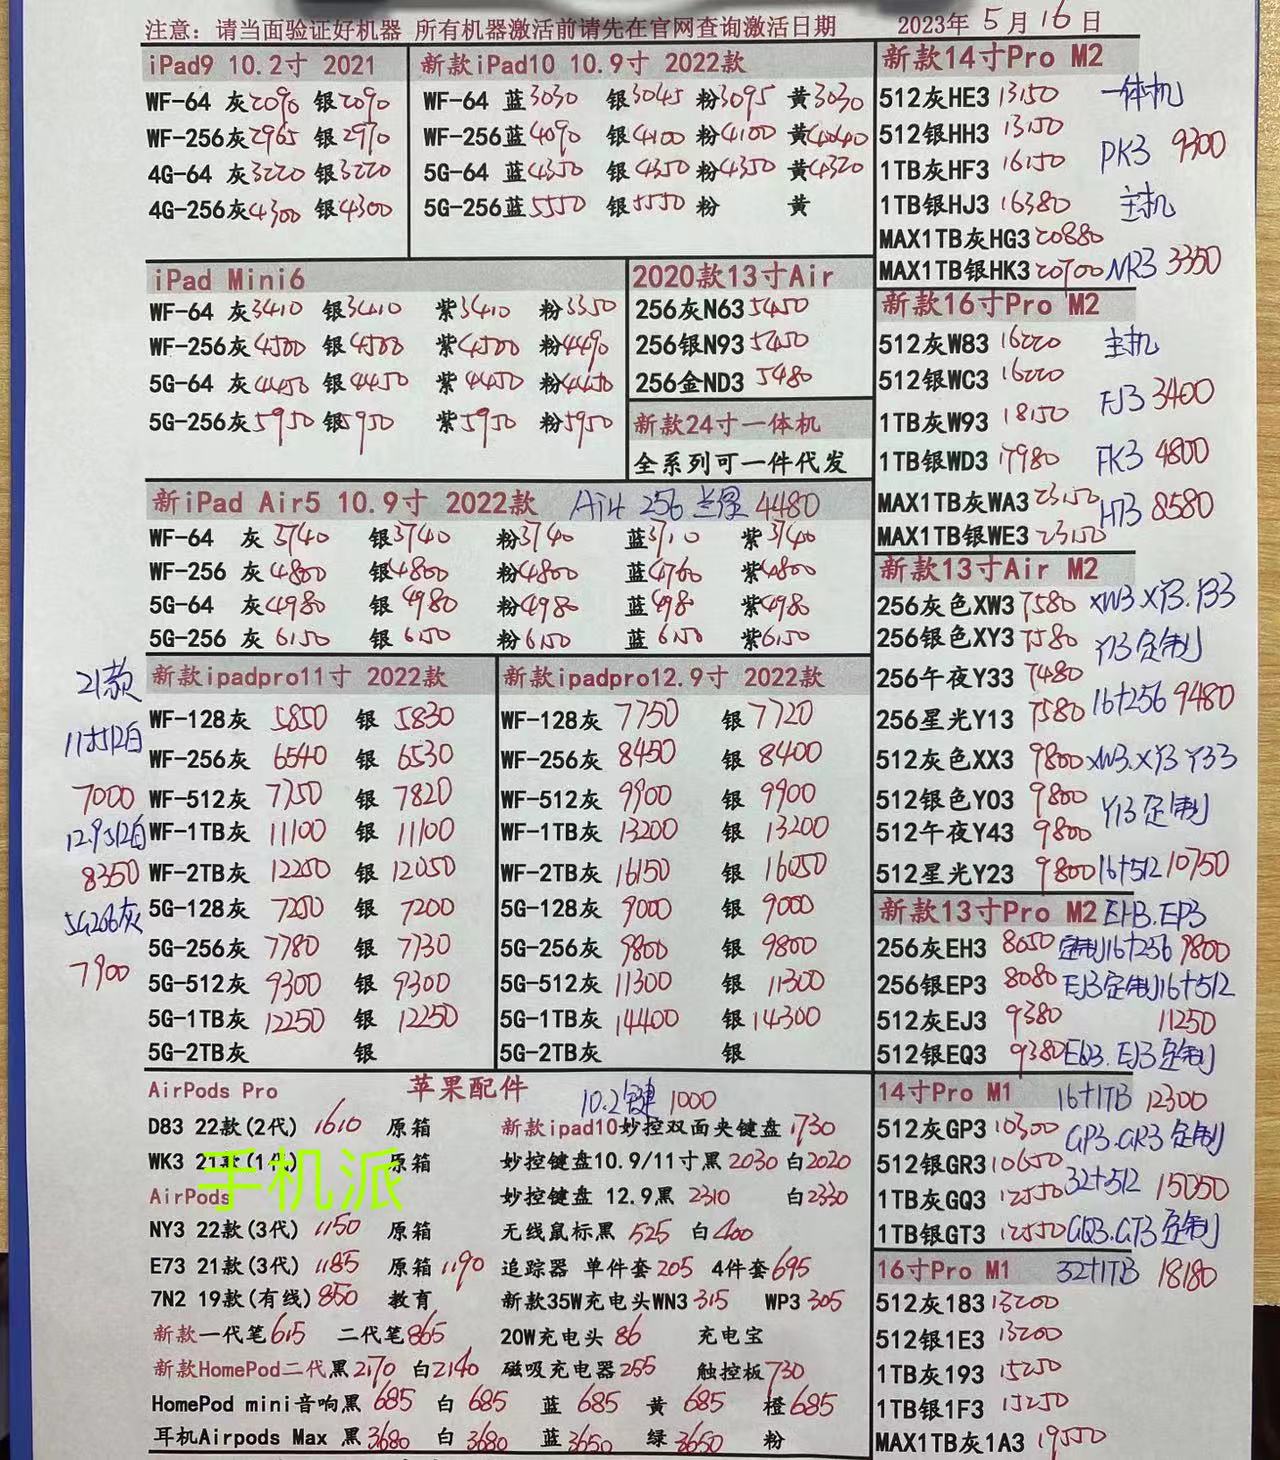 注意：请当面验证好机器 所有机器激活前请先在官网查询激活日期 2023年 5月16日
iPad9 10.2寸 2021
WF-64 灰2090 银2090
WF-256灰2965 银2970
4G-64 灰3220 银3220
4G-256灰4300 银4300
新款iPad10 10.9寸 2022款
WF-64 蓝3030 银3045 粉3095 黄3030
WF-256蓝4090 银4100 粉4100 黄4040
5G-64 蓝4350 银4350 粉4350 黄4320
5G-256蓝5550 银5550 粉 黄
iPad Mini6
WF-64 灰3410 银3410 紫3410 粉3350
WF-256灰4500 银4500 紫4500 粉4490
5G-64 灰4450 银4450 紫4450 粉4450
5G-256灰5950 银5950 紫5950 粉5950
2020款13寸Air
256灰N63 5450
256银N93 5450
256金ND3 5480
新款24寸一体机
全系列可一件代发
新iPad Air5 10.9寸 2022款 Air4 256 兰绿 4480
WF-64 灰3740 银3740 粉3740 蓝3710 紫3740
WF-256 灰4800 银4800 粉4800 蓝4760 紫4800
5G-64 灰4980 银4980 粉4980 蓝4980 紫4980
5G-256 灰6150 银6150 粉6150 蓝6150 紫6150
21款
11寸512白
7000
12.9512白
8350
5G256灰
7900
新款ipadpro11寸 2022款
WF-128灰 5850 银 5830
WF-256灰 6540 银 6530
WF-512灰 7750 银 7820
WF-1TB灰 11100 银 11100
WF-2TB灰 12250 银 12050
5G-128灰 7250 银 7200
5G-256灰 7780 银 7730
5G-512灰 9300 银 9300
5G-1TB灰 12250 银 12250
5G-2TB灰 银
新款ipadpro12.9寸 2022款
WF-128灰 7750 银7720
WF-256灰 8450 银 8400
WF-512灰 9900 银 9900
WF-1TB灰 13200 银 13200
WF-2TB灰 16150 银 16050
5G-128灰 9000 银 9000
5G-256灰 9800 银 9800
5G-512灰 11300 银 11300
5G-1TB灰 14400 银14300
5G-2TB灰 银
AirPods Pro 苹果配件 10.2键 1000
D83 22款(2代) 1610 原箱
WK3 21款(1代) 原箱
手机派
AirPods
NY3 22款(3代) 1150 原箱
E73 21款(3代) 1185 原箱1190
7N2 19款(有线) 850 教育
新款一代笔615 二代笔865
新款HomePod二代黑2170 白2140
新款ipad10妙控双面夹键盘1730
妙控键盘10.9/11寸黑2030 白2020
妙控键盘 12.9黑 2310 白2330
无线鼠标黑 525 白400
追踪器 单件套205 4件套695
新款35W充电头WN3 315 WP3 305
20W充电头 86 充电宝
磁吸充电器255 触控板730
HomePod mini音响黑 685 白 685 蓝 685 黄 685 橙685
耳机Airpods Max 黑3680 白 3680 蓝3650 绿3650 粉
新款14寸Pro M2
512灰HE3 13150
512银HH3 13150
1TB灰HF3 16150
1TB银HJ3 16380
MAX1TB灰HG3 20880
MAX1TB银HK3 20700
一体机
PK3 9300
主机
NR3 3350
新款16寸Pro M2
512灰W83 16220
512银WC3 16220
1TB灰W93 18150
1TB银WD3 17980
MAX1TB灰WA3 23150
MAX1TB银WE3 23150
主机
FJ3 3400
FK3 4800
H13 8580
新款13寸Air M2
256灰色XW3 7580 XW3.XY3.Y33
256银色XY3 7580 Y13定制
256午夜Y33 7480
256星光Y13 7580 16+256 9480
512灰色XX3 9800 XW3.XY3 Y33
512银色Y03 9800 Y13定制
512午夜Y43 9800
512星光Y23 9800 16+512 10750
新款13寸Pro M2 EH3.EP3
256灰EH3 8050 定制16+256 9800
256银EP3 8080 EJ3定制16+512
512灰EJ3 9380 11250
512银EQ3 9380 EQ3.EJ3定制
14寸Pro M1 16+1TB 12300
512灰GP3 10300 GP3.GR3定制
512银GR3 10650 32+512 15050
1TB灰GQ3 12550
1TB银GT3 12550 GQ3.GT3定制
16寸Pro M1 32+1TB 18180
512灰183 13200
512银1E3 13200
1TB灰193 15250
1TB银1F3 15250
MAX1TB灰1A3 19550